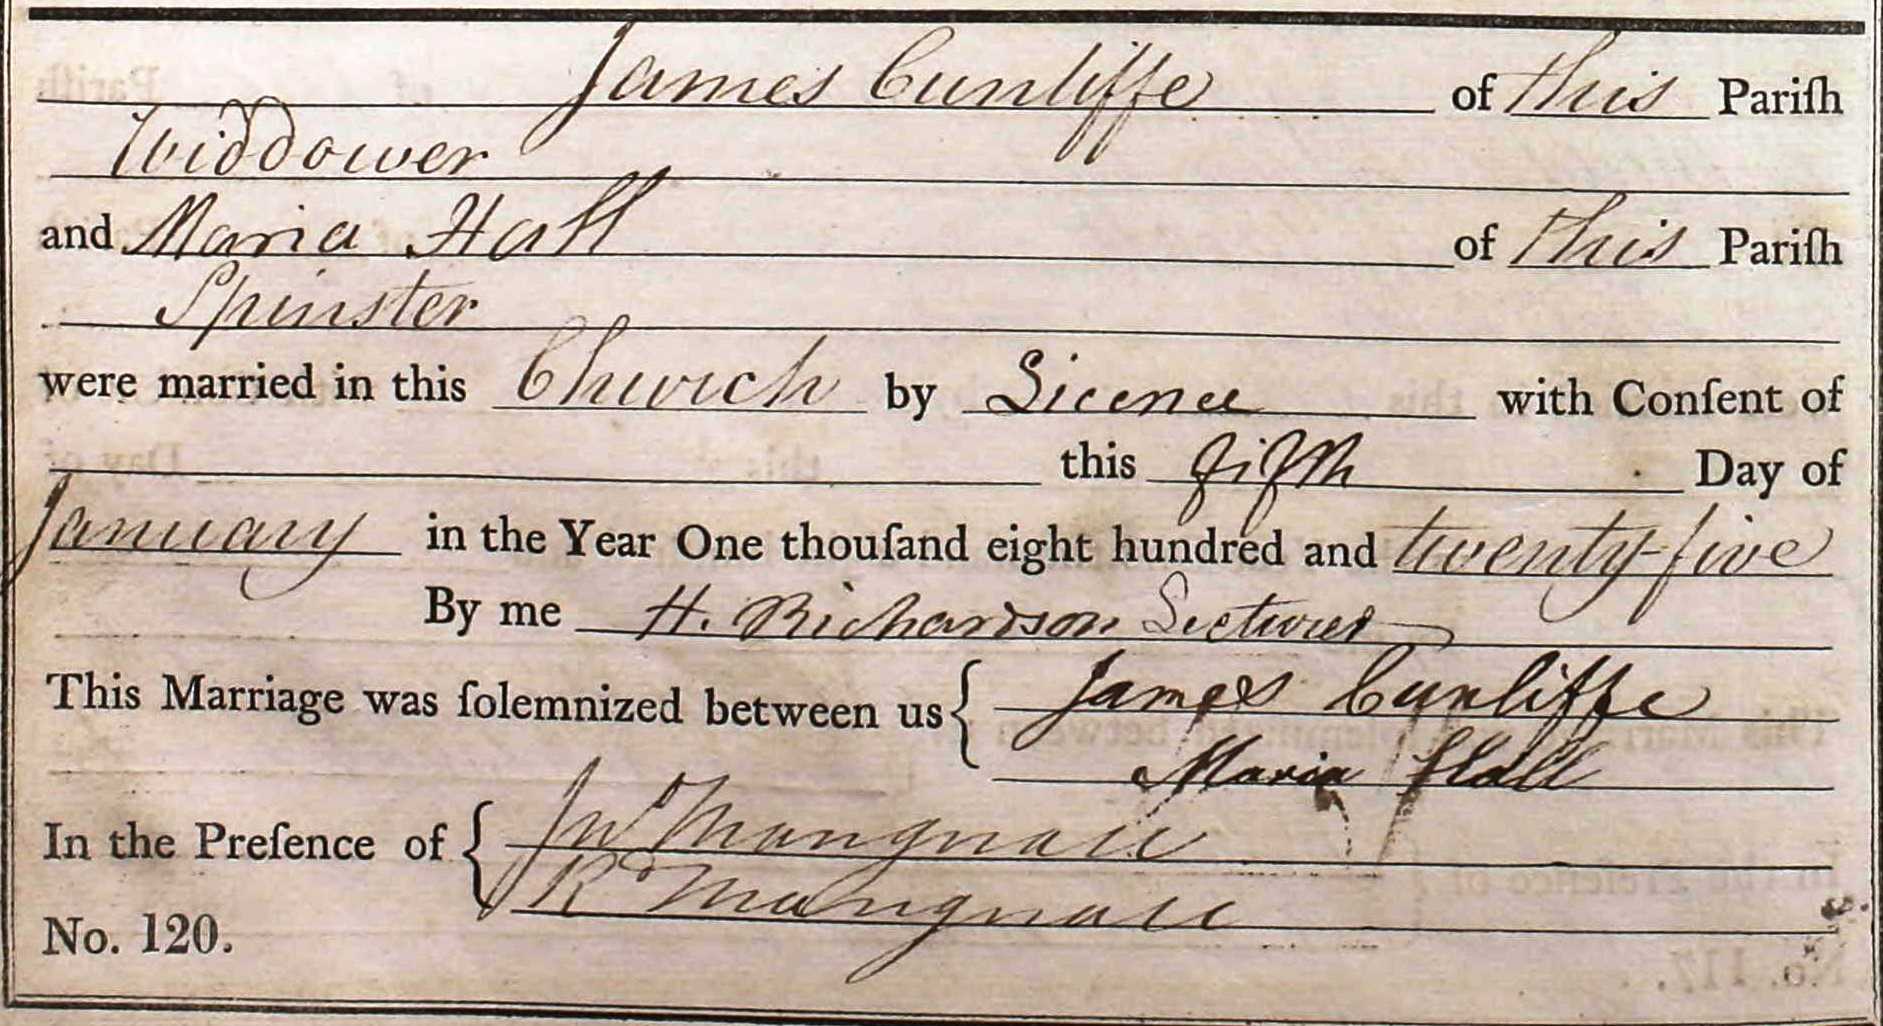 James Cunliffe of this Pariſh
Widdower
and Maria Hall of this Pariſh
Spinster
were married in this Church by Licence with Conſent of
this fifth Day of
January in the Year One thouſand eight hundred and twenty-five
By me H. Richardson Lecturer
This Marriage was ſolemnized between us { James Cunliffe
Maria Hall
In the Preſence of { Jno Mangnall
R Mangnall
No. 120.